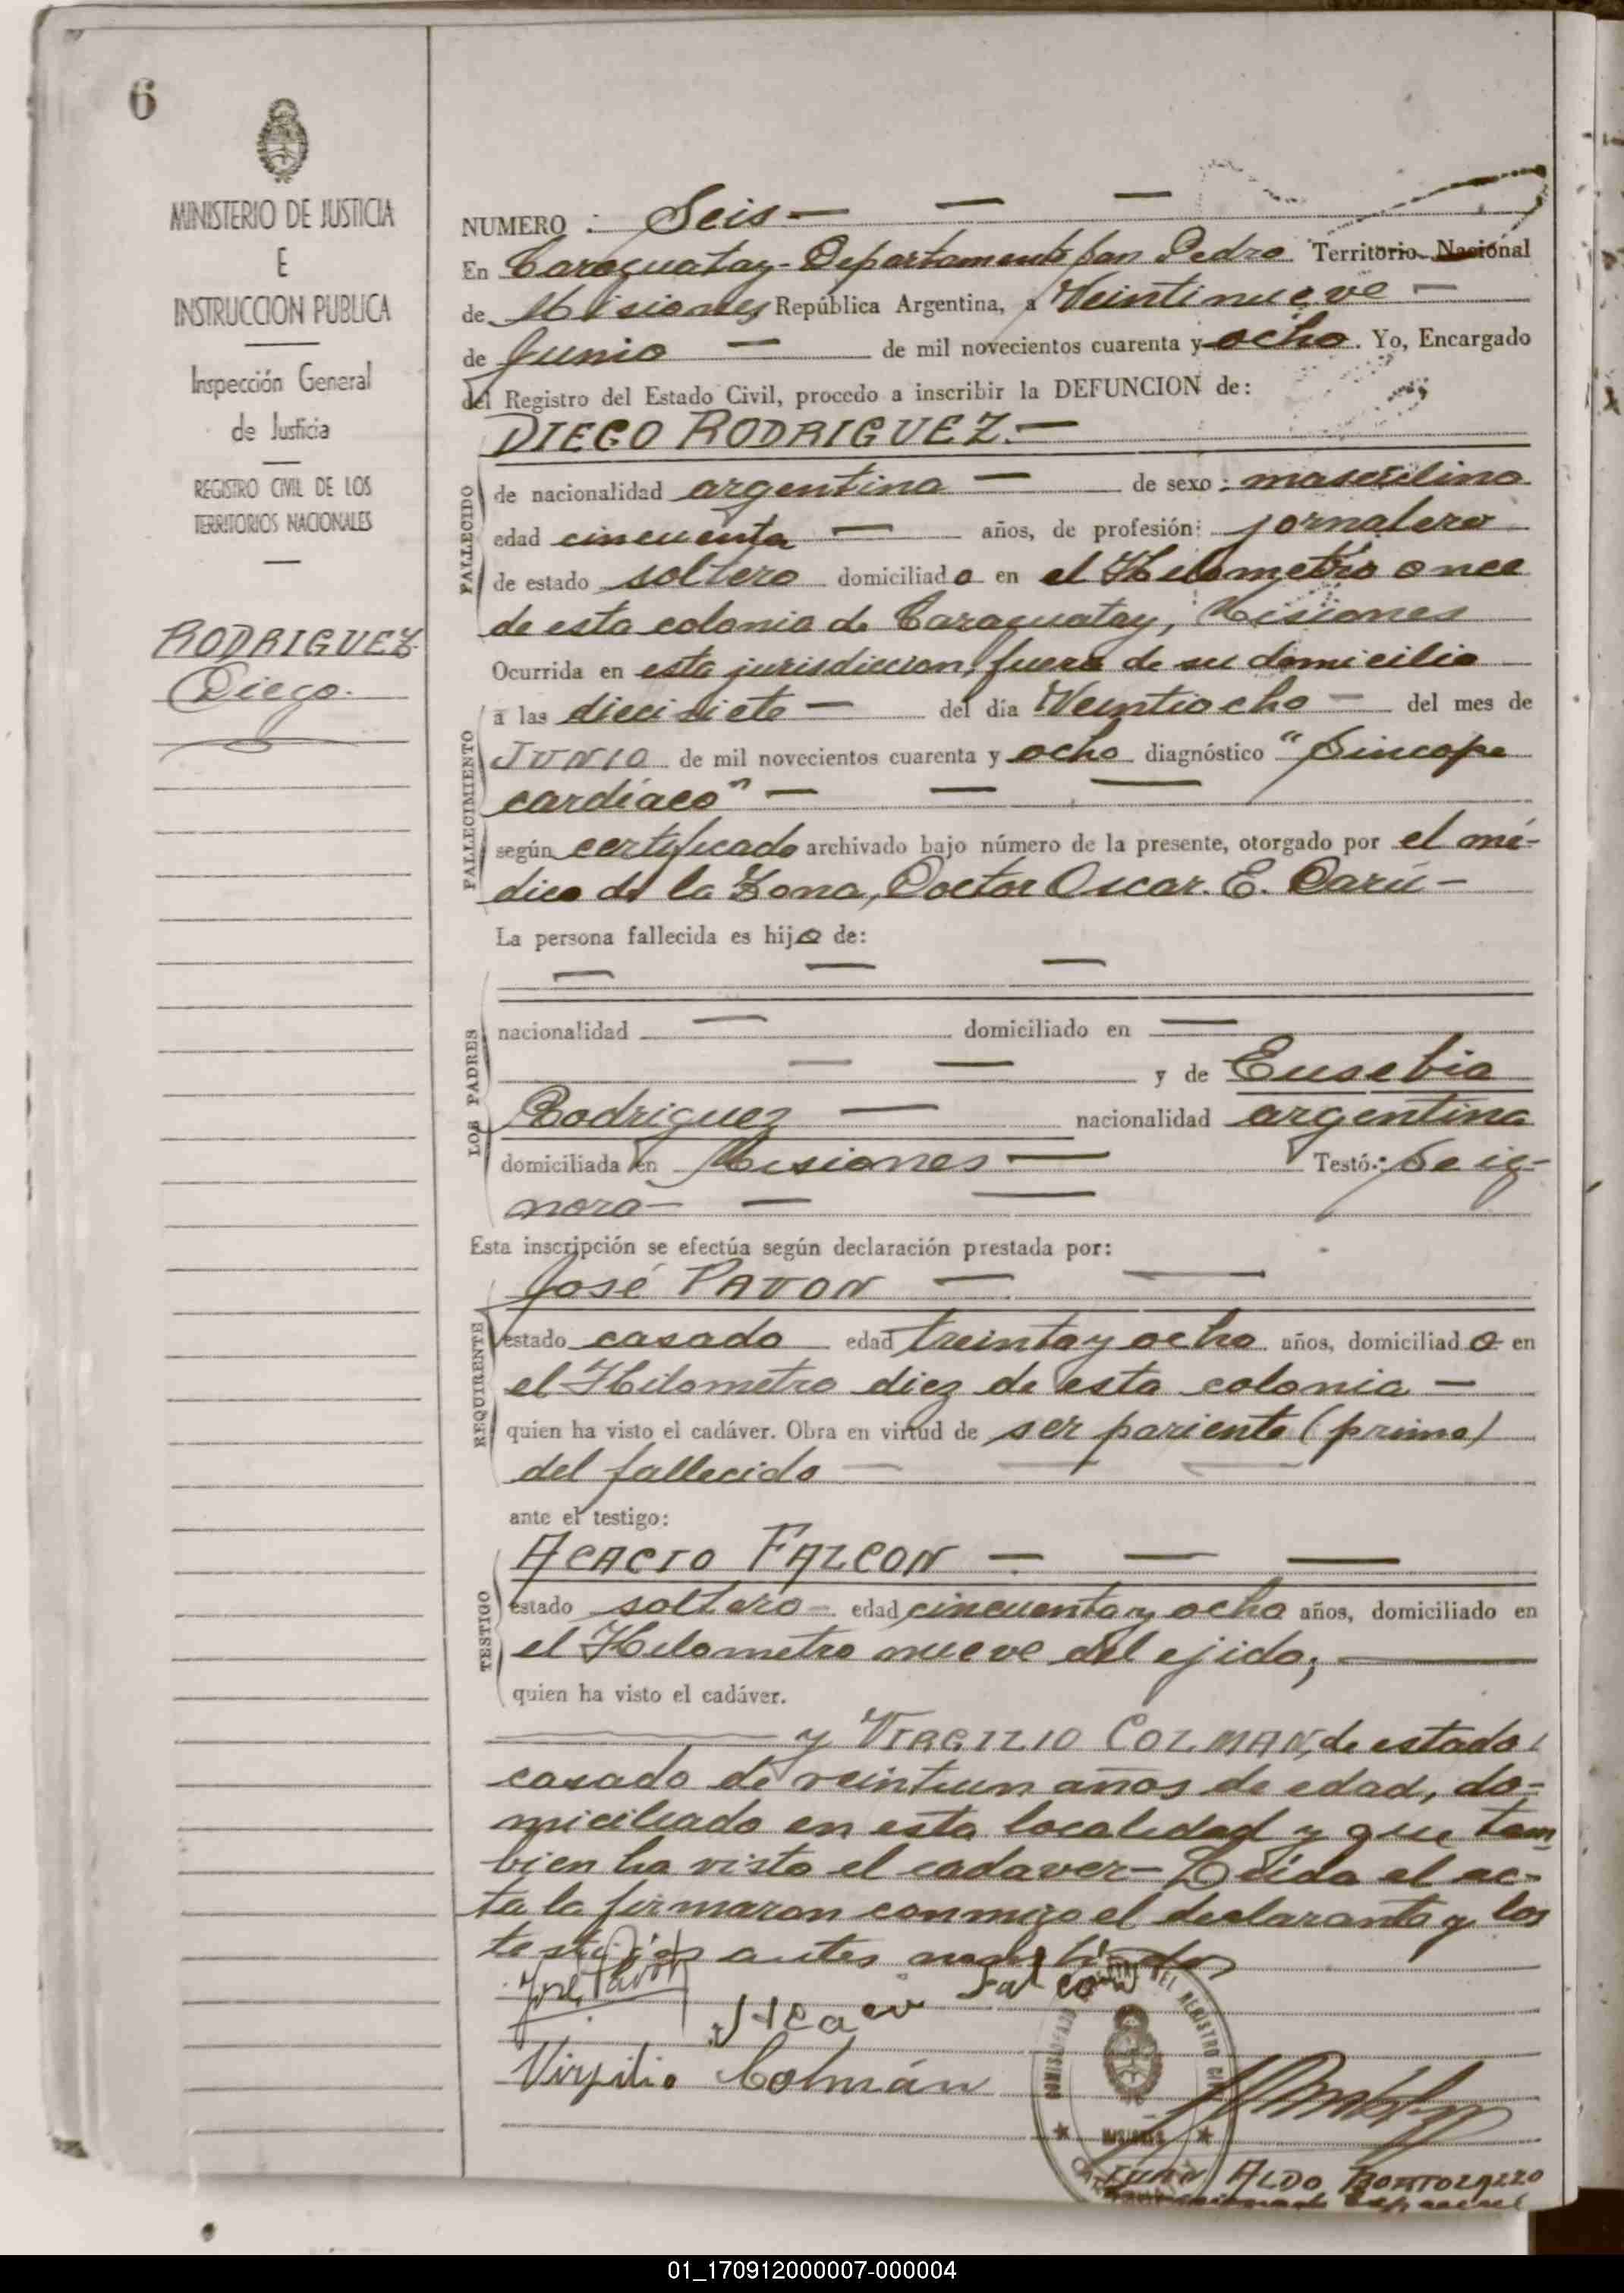 6
MINISTERIO DE JUSTICIA
E
INSTRUCCION PUBLICA
Inspección General
de Justicia
REGISTRO CIVIL DE LOS
TERRITORIOS NACIONALES
RODRIGUEZ
Diego.
NUMERO : Seis
En Caraguatay - Departamento San Pedro Territorio Nacional
de Misiones República Argentina, a Veintinueve
de Junio de mil novecientos cuarenta y ocho. Yo, Encargado
del Registro del Estado Civil, procedo a inscribir la DEFUNCION de:
DIEGO RODRIGUEZ.
FALLECIDO
de nacionalidad argentina de sexo : masculino
edad cincuenta años, de profesión: jornalero
de estado soltero domiciliado en el Kilometro once
de esta colonia de Caraguatay, Misiones
FALLECIMIENTO
Ocurrida en esta jurisdiccion, fuera de su domicilio
a las diecisiete del día Veintiocho del mes de
JUNIO de mil novecientos cuarenta y ocho diagnóstico "Sincope
cardíaco"
según certificado archivado bajo número de la presente, otorgado por el mé-
dico de la Zona, Doctor Oscar. E. Darú
La persona fallecida es hijo de:
LOS PADRES
nacionalidad domiciliado en
y de Eusebia
Rodriguez nacionalidad argentina
domiciliada en Misiones Testó: Se ig-
nora
Esta inscripción se efectúa según declaración prestada por:
REQUIRENTE
José PAVON
estado casado edad treinta y ocho años, domiciliado en
el Kilometro diez de esta colonia
quien ha visto el cadáver. Obra en virtud de ser pariente (primo)
del fallecido
ante el testigo:
TESTIGO
ACACIO FALCON
estado soltero edad cincuenta y ocho años, domiciliado en
el Kilometro nueve del ejido;
quien ha visto el cadáver.
y VIRGILIO COLMAN, de estado
casado de veintiun años de edad, do-
miciliado en esta localidad y que tam
bien ha visto el cadaver - Leida el ac-
ta la firmaron conmigo el declarante y los
testigos antes nombrados
José Pavon
Acacio Falcon
Virgilio Colmán
DEL REGISTRO CIVIL
MISIONES
JUAN ALDO BORTOLAZZO
01_170912000007-000004